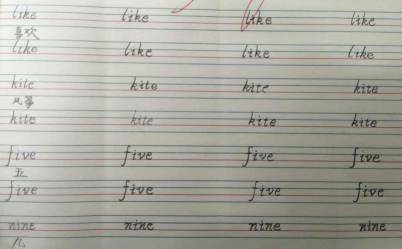 like like like like
喜欢
like like like like
kite kite kite kite
风筝
kite kite kite kite
five five five five
五
five five five five
nine nine nine nine